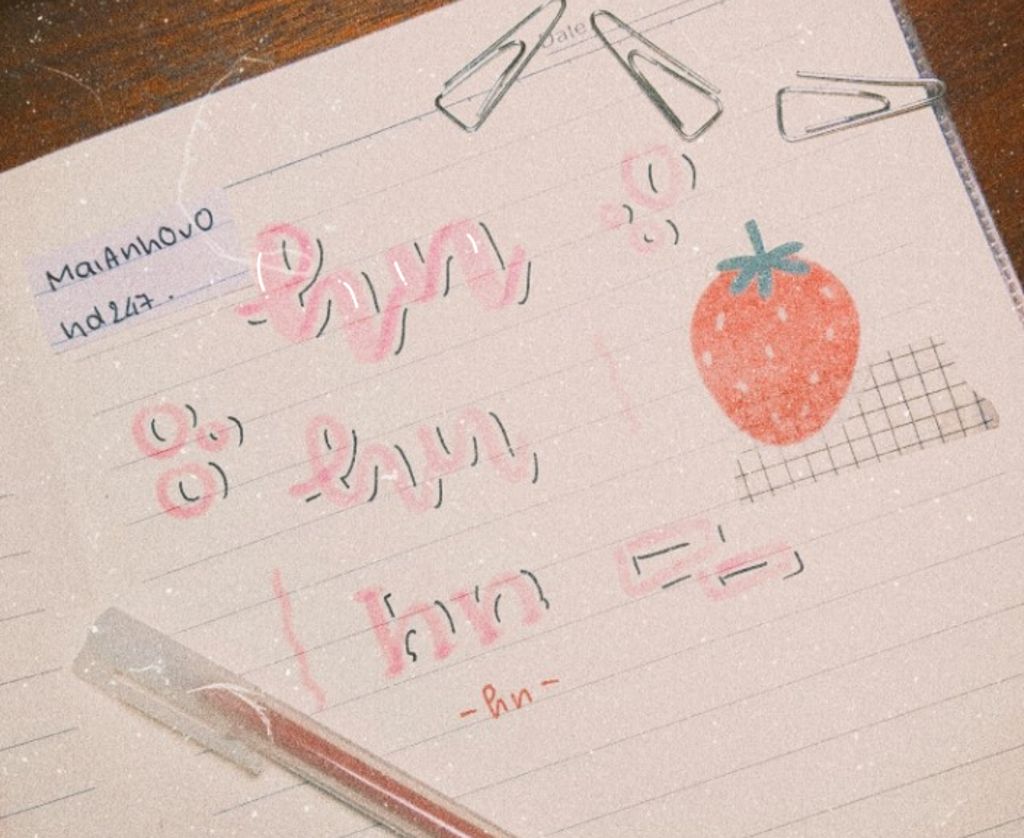 Date
MaiAnhOvO
hd247.
hn
hn
hn
-hn-